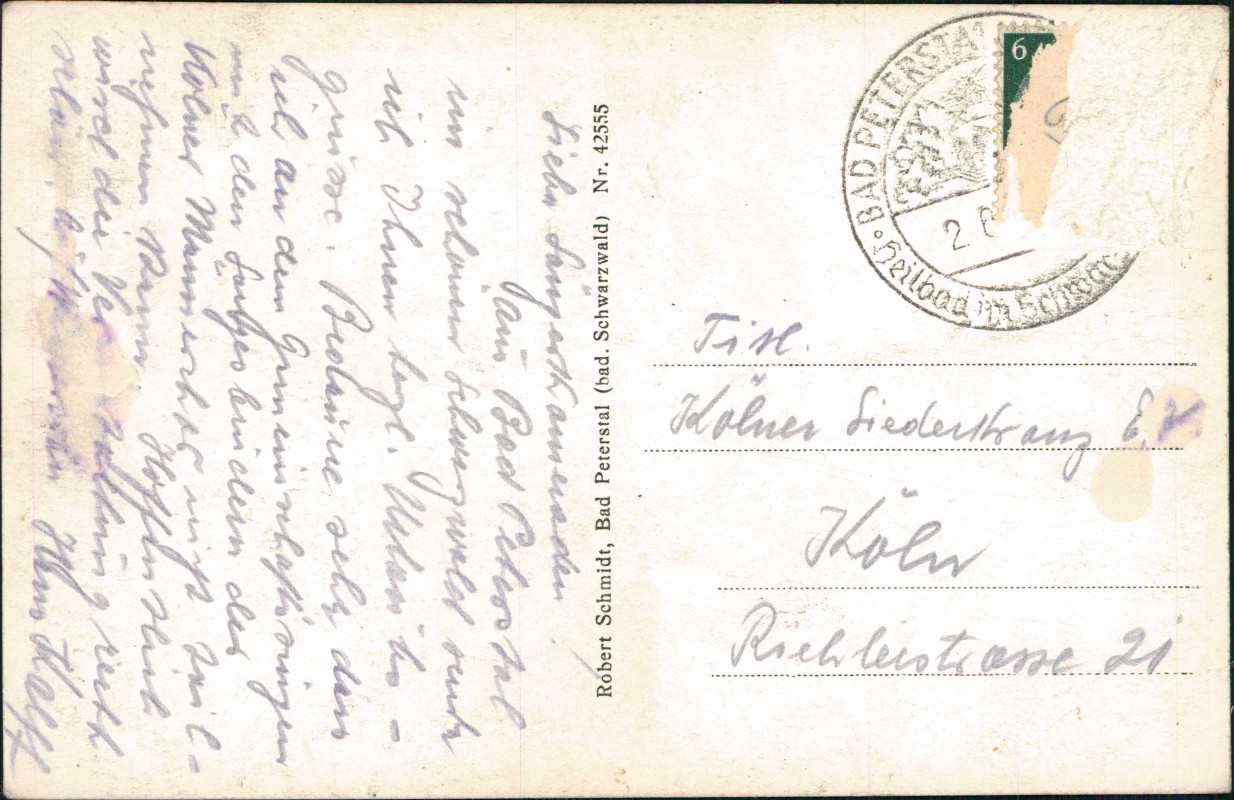 Liebe Sängerkameraden!
Aus Bad Peterstal
im schönen Schwarzwald sende
ich Ihnen herzl. Urlaubs-
grüsse. Bedaure sehr, dass
ich an dem
mit den Sangesbrüdern der
Kölner nicht teil-
nehmen kann. Hoffentlich
wird die Veranstaltung recht
schön.
Robert Schmidt, Bad Peterstal (bad. Schwarzwald) Nr. 42555
BAD PETERSTAL
6
2 6
Heilbad im Schwar
Titl.
Kölner Liederkranz E.V.
Köln
Riehlerstrasse 21